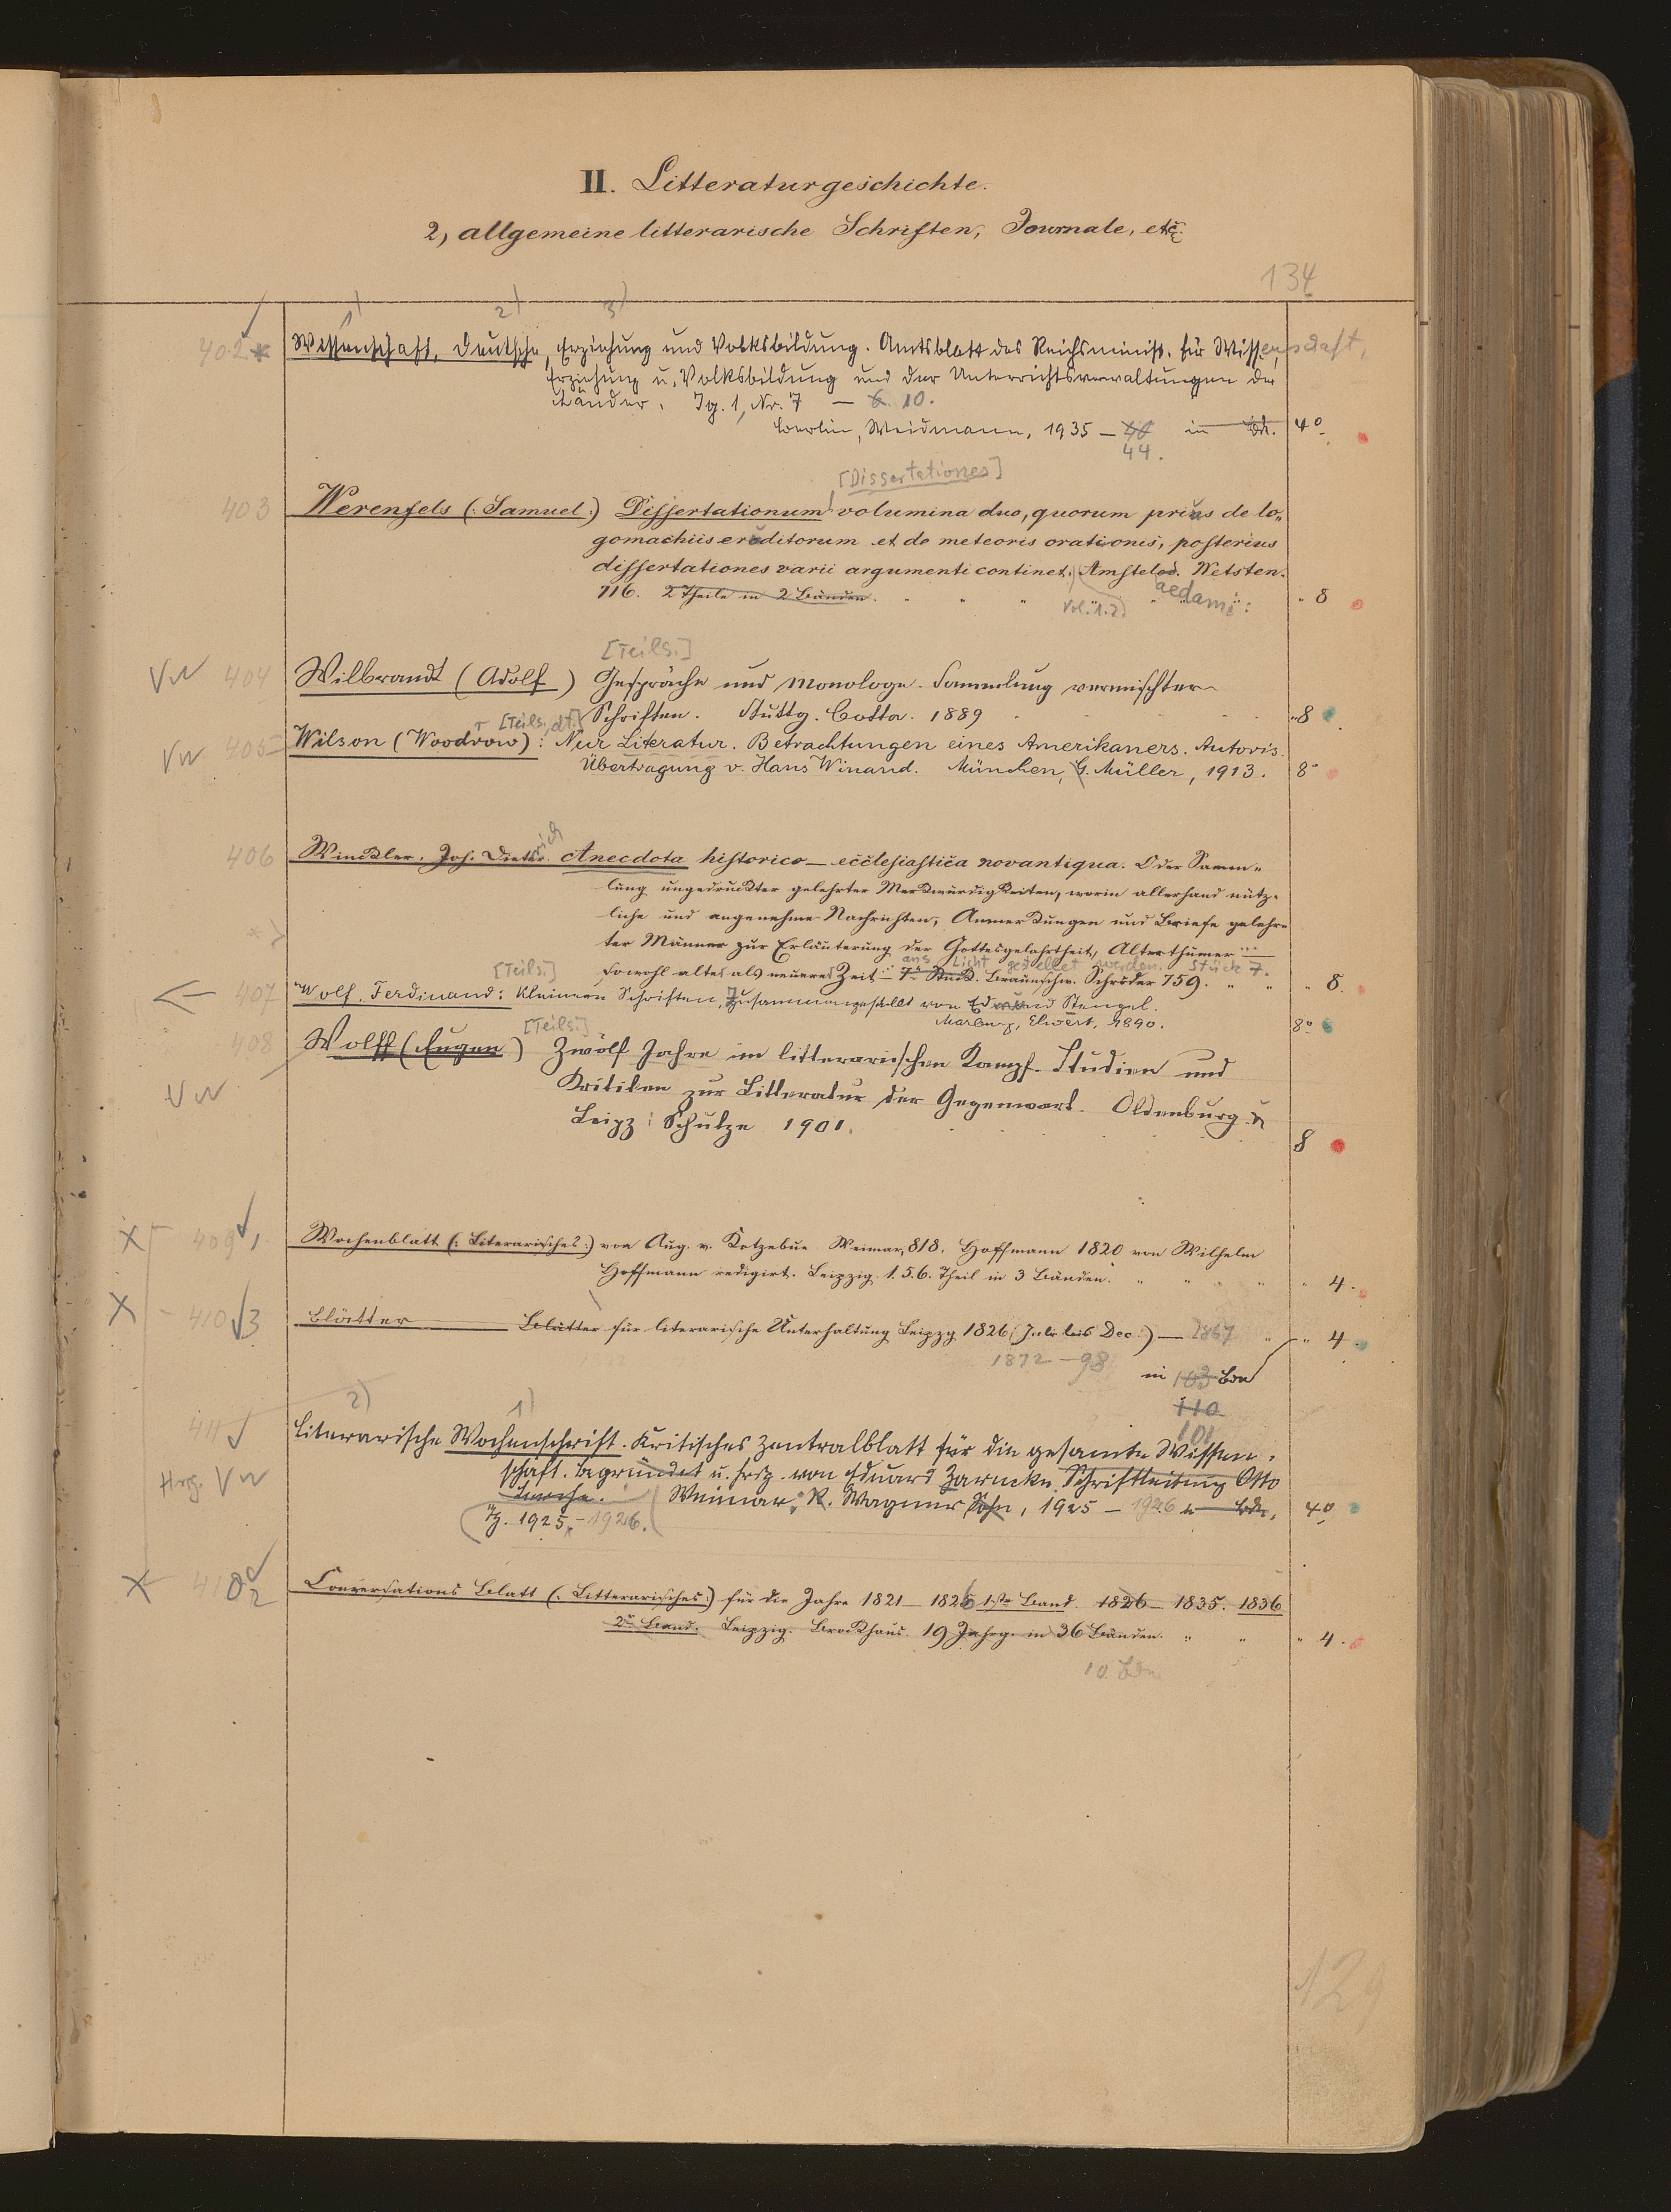 II. Litteraturgeschichte.
2, allgemeine litterarische Schriften, Journale, etc.
134
1) 2) 3)
402 * Wissenschaft, Deutsche, Erziehung und Volksbildung. Amtsblatt des Reichsminist. für Wissenschaft,
Erziehung u. Volksbildung und der Unterrichtsverwaltungen der
Länder. Jg. 1, Nr. 7 — 6. 10.
Berlin, Weidmann, 1935 — 40 in Bd. 4°
44.
[Dissertationes]
403 Werenfels (: Samuel :) Dissertationum volumina duo, quorum prius de lo„
gomachiis eruditorum et de meteoris orationis, posterius
dissertationes varii argumenti continet. Amstelod. Wetsten.
716. 2 Theile in 2 Bänden. Vol. 1.2. aedami: „ 8
[Teils.]
VN 404 Wilbrandt (Adolf) Gespräche und Monologe. Sammlung vermischter
Schriften. Stuttg. Cotta. 1889 „ 8
[Teils., dt.]
VN 405 Wilson (Woodrow): Nur Literatur. Betrachtungen eines Amerikaners. Autoris.
Übertragung v. Hans Winand. München, G. Müller, 1913. 8°
406 Winckler, Joh. Dietrich Anecdota historico-ecclesiastica novantiqua. Oder Samm„
lung ungedruckter gelehrter Merkwürdigkeiten, worin allerhand nütz„
liche und angenehme Nachrichten, Anmerkungen und Briefe gelehr„
ter Männer zur Erläuterung der Gottesgelahrtheit, Alterthümer ...
ans Licht gestellet werden. Stück 7.
sowohl alter als neuerer Zeit 7s Stück. Braunschw. Schröder 759. „ „ „ 8.
[Teils.]
407 Wolf, Ferdinand: Kleinere Schriften, Zusammengestellt von Edmund Stengel.
Marburg, Elwert, 1890. 8°
[Teils.]
408 Wolff (Eugen) Zwölf Jahre im litterarischen Kampf. Studien und
VN Kritiken zur Litteratur der Gegenwart. Oldenburg u
Leipz: Schulze 1901. 8
X 409 1 Wochenblatt (: Literarisches :) von Aug. v. Kotzebue Weimar, 818. Hoffmann 1820 von Wilhelm
Hoffmann redigirt. Leipzig. 1. 5. 6. Theil in 3 Bänden. „ „ „ „ 4.
X 410 3 Blätter Blätter für literarische Unterhaltung Leipzg 1826 (Juli bis Dec.) — 1867 „ „ 4.
1872 — 98
in 103 Bdn
110
101
2) 1)
411 Literarische Wochenschrift. Kritisches Zentralblatt für die gesamte Wissen„
schaft. Begründet u. hrsg. von Eduard Zarncke. Schriftleitung Otto
Hrsg. VN Weimar, R. Wagner Sohn, 1925 — 1926 in Bdn, 4°
Jg. 1925 — 1926.
X 412 2 Conversations Blatt (: Litterarisches :) für die Jahre 1821 — 1825 1ster Band. 1826 — 1835. 1836
2r Band. Leipzig. Brockhaus. 19 Jahrg. in 36 Bänden. „ „ „ 4.
10 Bdn
129